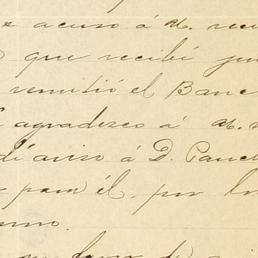 e acuso á M. reci
que recibí jun
remitió el Banc
agradezco á M.
dí aviso á D. Panch
para él, por
mo.